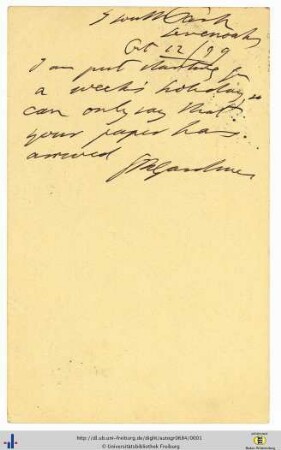 7 South Park
Sevenoaks
Oct 12/99
I am just starting for
a week's holiday, so
can only say that
your paper has
arrived
S R Gardiner
http://dl.ub.uni-freiburg.de/diglit/autogr0694/0001
© Universitätsbibliothek Freiburg